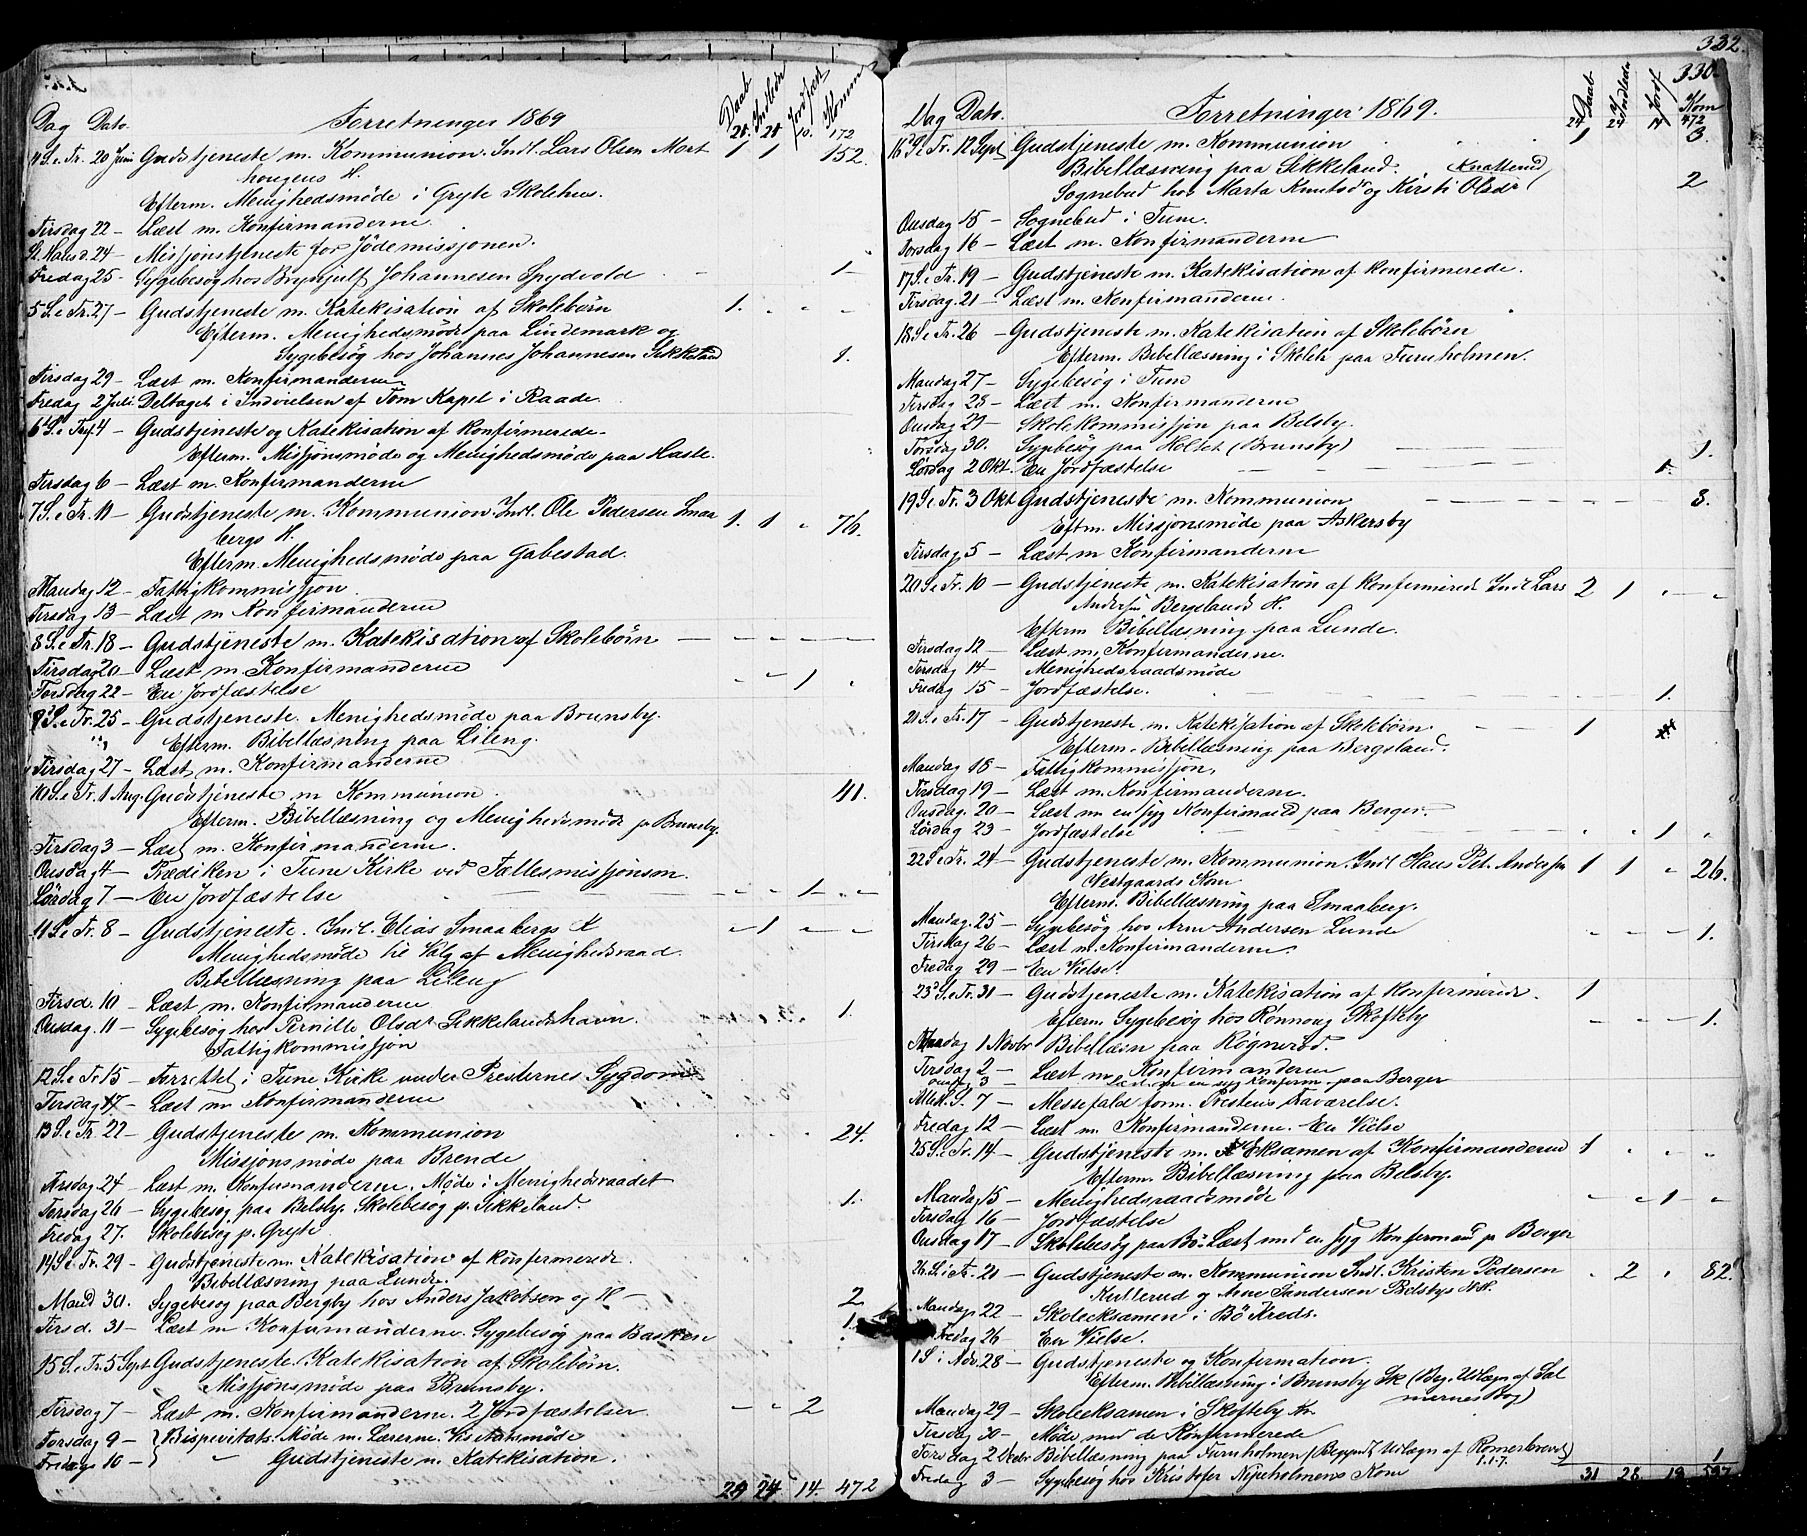 Dag Dato. Forretninger 1869 Daab Indlede Jordfæst Komm
20. 20 10. 172
4 S. e. Tr. 20 Juni Gudstjeneste m. Kommunion. Indl. Lars Olsen Mort 1 1 152.
hougens H.
Efterm. Menighedsmöde i Gryte Skolehus.
Tirsdag 22 — Læst m. Konfirmanderne.
St. Hansd. 24 — Missjonstjeneste for Jödemissjonen.
Fredag 25 — Sygebesøg hos Brynjulf Johannesen Spydvold — 1 —
5 S. e. Tr. 27 — Gudstjeneste m. Katekisation af Skolebörn 1.
Efterm. Menighedsmöde paa Lindemark og
Sygebesøg hos Johannes Johannesen Sikkeland 1.
Tirsdag 29 — Læst m. Konfirmanderne
Fredag 2 Juli. Deltaget i Indvielsen af Tom Kapel i Raade.
6 S. e. Tr. 4 — Gudstjeneste og Katekisation af konfirmerede.
Efterm. Missjonsmöde og Menighedsmöde paa Hasle.
Tirsdag 6 — Læst m. Konfirmanderne
7 S. e. Tr. 11 — Gudstjeneste m. Kommunion. Indl. Ole Pedersen Smaa 1. 1 „ 76.
bergs H.
Efterm. Menighedsmöde paa Gabestad.
Mandag 12 — Fattigkommissjon.
Tirsdag 13 — Læst m Konfirmanderne
8 S. e. Tr. 18 — Gudstjeneste m. Katekisation af Skolebörn — — — — —
Tirsdag 20 — Læst m. Konfirmanderne
Torsdag 22 — En Jordfæstelse — — 1 „
9 S. e. Tr. 25 — Gudstjeneste. Menighedsmöde paa Brunsby.
Efterm. Bibellæsning paa Lileng.
Tirsdag 27 — Læst m. Konfirmanderne
10 S. e. Tr. 1 Aug. Gudstjeneste m Kommunion. 41.
Efterm. Bibellæsning og Menighedsmöde p. Brunsby.
Tirsdag 3 — Læst m. Konfirmanderne.
Onsdag 4 — Prædiken i Tune Kirke ved Fællesmissjonsm.
Lördag 7 — En Jordfæstelse — — 1 — —
11 S. e. Tr. 8 — Gudstjeneste. Indl. Elias Smaabergs K — 1 — —
Menighedsmöde til Valg af Menighedsraad.
Bibellæsning paa Lileng
Tirsd. 10 — Læst m. Konfirmanderne
Onsdag. 11 — Sygebesøg hos Pernille Olsdr Sikkelandshavn. 1.
Fattigkommissjon
12 S. e. Tr. 15 — Forrettet i Tune Kirke under Presternes Sygdom
Tirsdag 17 — Læst m. Konfirmanderne
13 S. e. Tr. 22 — Gudstjeneste m. Kommunion 24.
Missjonsmöde paa Brende
Tirsdag 24 — Læst m. Konfirmanderne. Möde i Menighedsraadet
Torsdag 26 — Sygebesøg paa Belsby. Skolebesøg p. Sikkeland. 1.
Fredag 27. Skolebesøg p. Gryte
14 S. e. Tr. 29 — Gudstjeneste m. Katekisation af konfirmerede.
Bibellæsning paa Lunde.
Mand 30. Sygebesøg paa Bergby hos Anders Jakobsen og H — 2
Tirsd. 31 — Læst m Konfirmanderne. Sygebesøg paa Bakken 1.
15 S. e. Tr. 5 Sept. Gudstjeneste. Katekisation af Skolebörn.
Missjonsmöde paa Brunsby.
Tirsdag 7 — Læst m. Konfirmanderne. 2 Jordfæstelser — — 2
Torsdag 9 — } Bispevisitats. Möde m. Lærerne.
Fredag 10 — } „ Gudstjeneste m. Katekisation.
24 24. 14. 472

332.
330.
Dag Dato. Forretninger 1869. Daab Indlede Jordf Kom
24 24 14 472
16 S. e. Tr. 12 Sept. Gudstjeneste m. Kommunion 1 3.
Bibellæsning paa Sikkeland. Knatterud
Sognebud hos Marta Knutsdr og Kirsti Olsdr 2
Onsdag 15 — Sognebud i Tune.
Torsdag 16 — Læst m. Konfirmanderne
17 S. e. Tr. 19 — Gudstjeneste m. Katekisation af konfirmerede.
Tirsdag. 21 — Læst m. Konfirmanderne.
18 S. e. Tr. 26 — Gudstjeneste m. Katekisation af Skolebörn
Efterm. Bibellæsning i Skolen paa Furuholmen.
Mandag 27 — Sygebesøg i Tune
Tirsdag 28 — Læst m. Konfirmanderne
Onsdag 29 — Skolekommissjon paa Belsby.
Torsdag 30. Sygebesøg paa Holtet (Brunsby) — — — 1.
Lördag 2 Okt. En Jordfæstelse — — — 1.
19 S. e. Tr. 3 Okt Gudstjeneste m. Kommunion — — — — 8.
Eftm. Missjonsmöde paa Askersby
Tirsdag 5 — Læst m Konfirmanderne
20 S. e. Tr. 10 — Gudstjeneste m. Katekisation af konfirmerede Indl Lars 2 1 „ „
Andersen Bergslands H.
Efterm Bibellæsning paa Lunde.
Tirsdag 12 — Læst m. Konfirmanderne.
Torsdag 14 — Menighedsraadsmöde
Fredag 15 — Jordfæstelse. — — — 1.
21 S. e. Tr. 17 — Gudstjeneste m. Katekisation af Skolebörn. — — 1
Efterm. Bibellæsning paa Bergsland.
Mandag 18 — Fattigkommissjon.
Tirsdag 19 — Læst m. Konfirmanderne.
Onsdag. 20 — Læst m en syg Konfirmand paa Berger.
Lördag 23 — Jordfæstelse — — — 1 „
22 S. e. Tr. 24 — Gudstjeneste m. Kommunion. Indl Hans Pet. Andersen 1 1 „ 26.
Vestgaards Kone
Efterm. Bibellæsning paa Smaaberg.
Mandag. 25 — Sygebesøg hos Arne Andersen Lunde — — — 1.
Tirsdag 26 — Læst m. Konfirmanderne.
Fredag 29 — En Vielse.
23 S. e. Tr. 31 — Gudstjeneste m. Katekisation af konfirmerede. 1
Efterm. Sygebesøg hos Rønnoug Skofteby — — — 1.
Mandag 1 Novbr Bibellæsn paa Rögneröd.
Tirsdag 2 — Læst m Konfirmanderne
Onsd 3 — Læst m en syg Konfirm. paa Berger
Alleh. S. 7 — Messefald form. Prestens Fraværelse.
Fredag 12 — Læst m. Konfirmanderne. En Vielse
25 S. e. Tr. 14 — Gudstjeneste m. Eksamen af Konfirmanderne 1 „ „ „
Efterm. Bibellæsning paa Belsby.
Mandag 15 — Menighedsraadsmöde
Tirsdag 16 — Jordfæstelse — — 1 —
Onsdag 17 — Skolebesøg paa Bö. Læst med en syg Konfirmand p. Berger
26 S. e. Tr. 21 — Gudstjeneste m. Kommunion Indl. Kristen Pedersen „ 2 „ 82.
Kutterud og Arne Andersen Belsbys H.H.
Mandag 22 — Skoleeksamen i Bö Kreds.
Fredag 26 — En Vielse.
1 S i Adv. 28 — Gudstjeneste og Konfirmation.
Efterm. Bibellæsning i Brunsby Sk (Beg. Udlægn af Sal
mernes Bog)
Mandag 29 — Skoleeksamen i Skofteby Kr.
Tirsdag 30 — Möde med de Konfirmerede
Torsdag 2 Decbr Bibellæsning paa Furuholmen (Begyndt Udlægn af Romerbrevet) 1.1-7.
Fredag 3 — Sygebesøg hos Kristofer Nipeholmens Kone 1
31 28 19 597